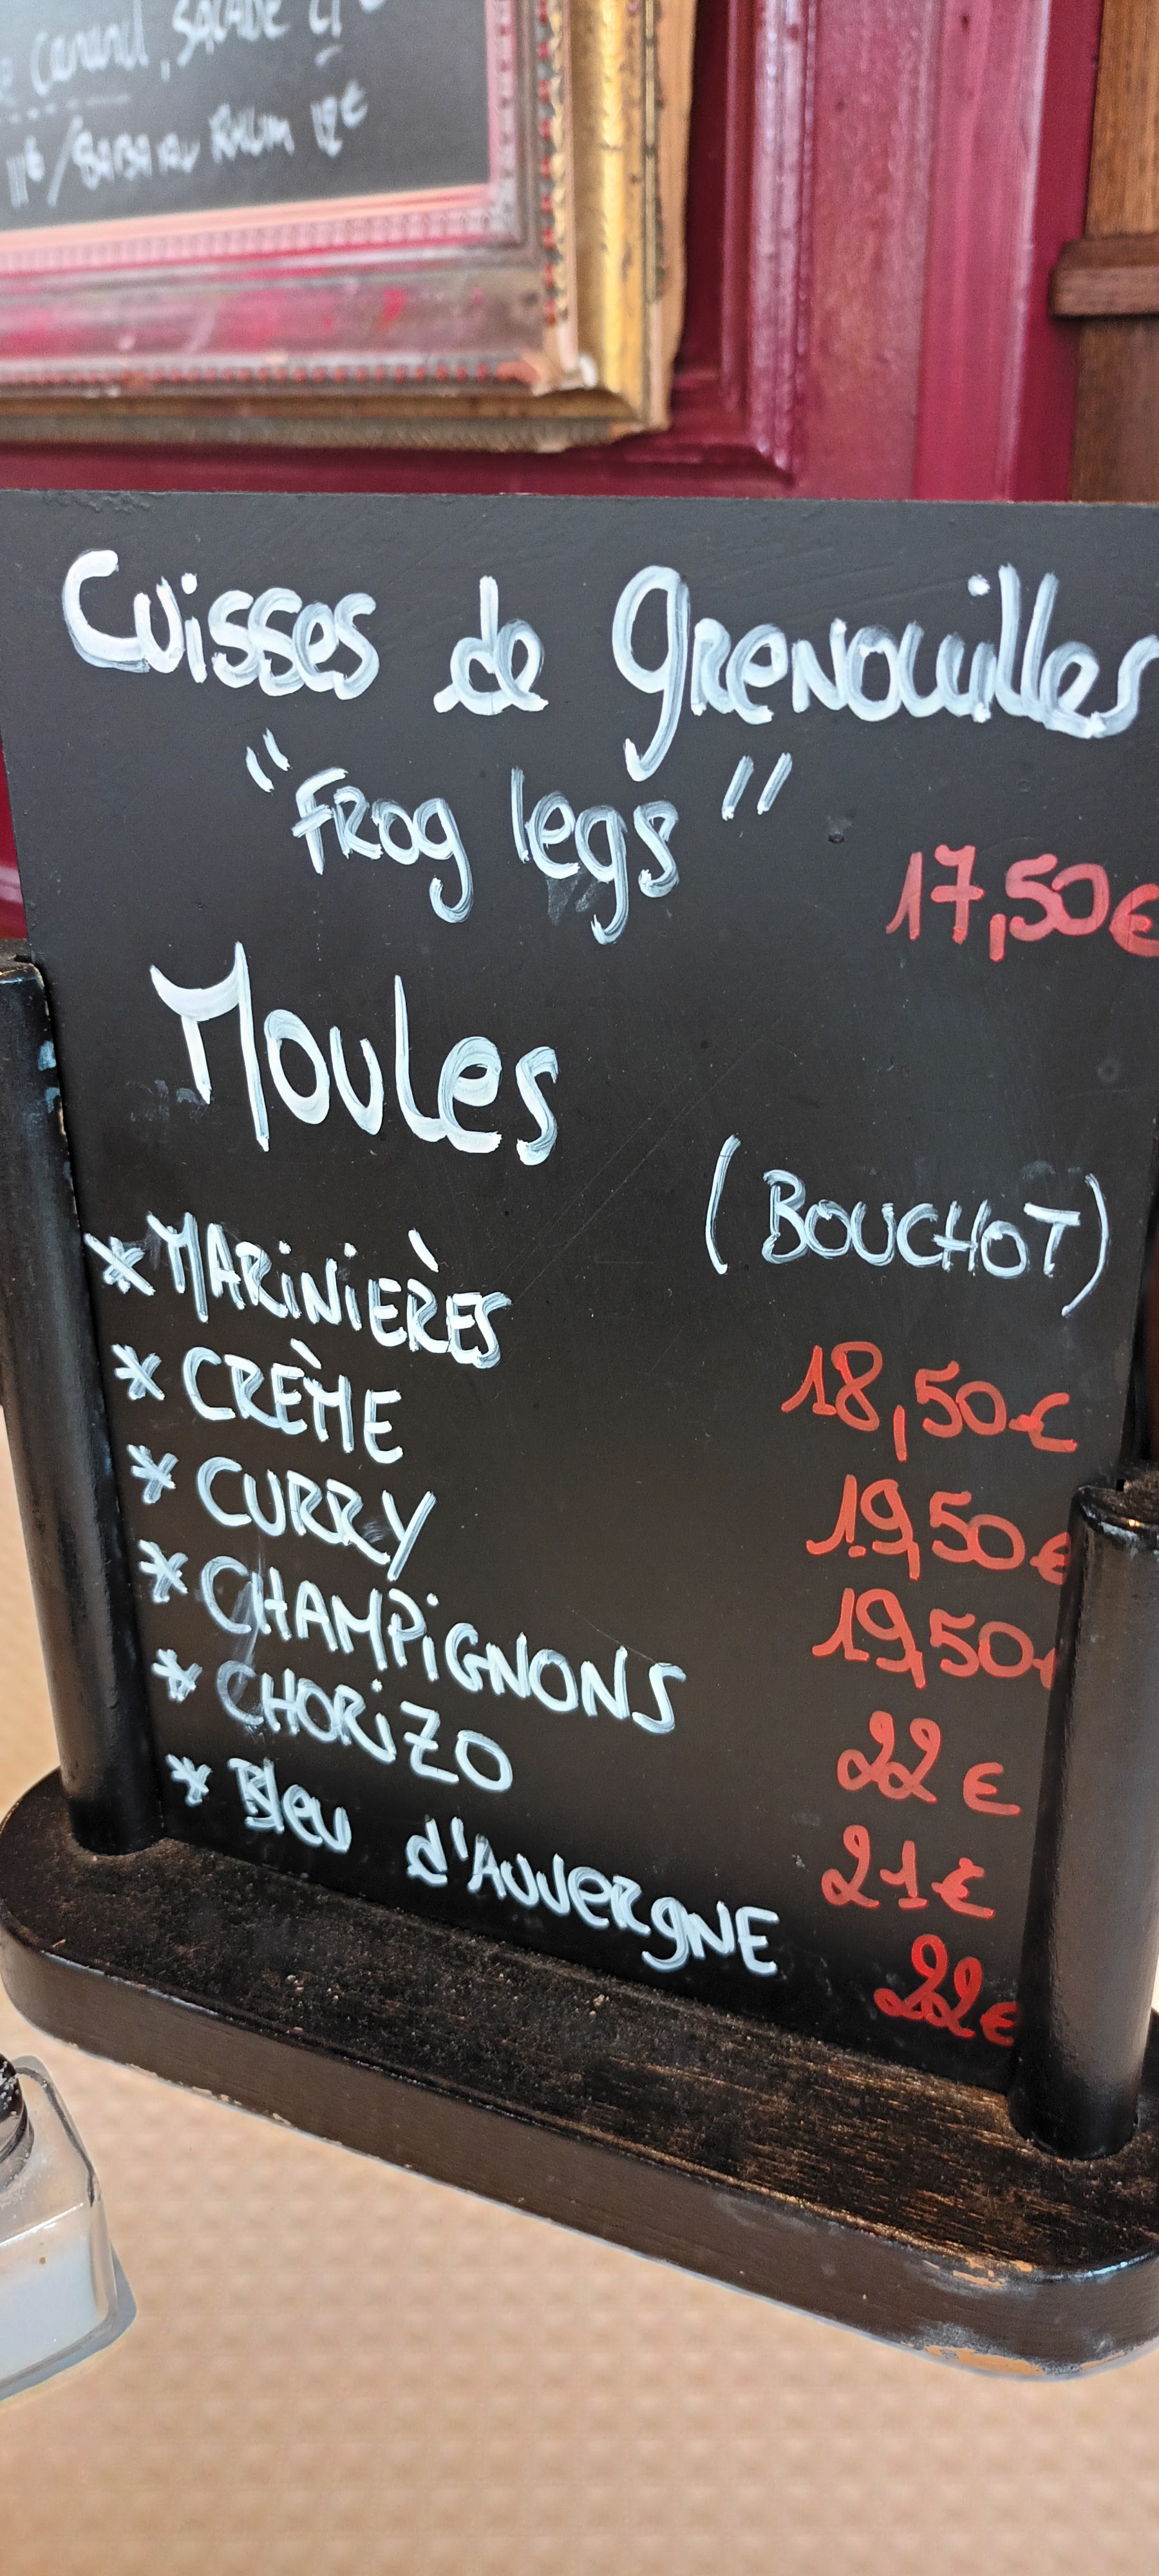 Canard, SALADE
11€/BABA AU RHUM 12€
Cuisses de Grenouilles
"Frog legs"
17,50€
Moules
(BOUCHOT)
* MARINIERÈS 18,50€
* CRÈME 19,50€
* CURRY 19,50€
* CHAMPIGNONS 22€
* CHORIZO 21€
* Bleu d'AuvergNE 22€